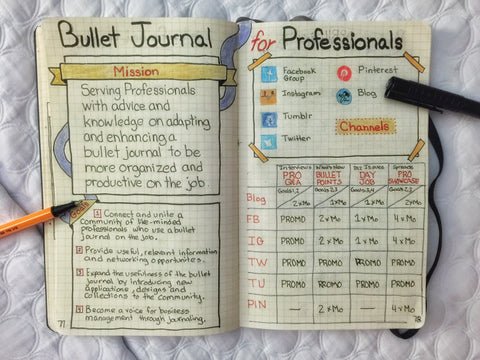 Bullet Journal
Mission
Serving Professionals
with advice and
knowledge on adapting
and enhancing a
bullet journal to be
more organized and
productive on the job.
Goals
1 Connect and unite a
community of like-minded
professionals who use a bullet
journal on the job.
2 Provide useful, relevant information
and networking opportunites.
3 Expand the usefulness of the bullet
journal by introducing new
applications, designs and
collections to the community.
4 Become a voice for business
management through journaling.
77
for Professionals
Facebook Group
Pinterest
Instagram
Blog
Tumblr
Channels
Twitter
Interviews What's New Spreads
PRO BULLET DAY PRO
Q&A POINTS JOB SHOWCASE
Goals Goals Goals Goals
Blog 2xMo 1xMo 1xMo 2xMo
FB PROMO 2xMo 1xMo 4xMo
IG PROMO 2xMo 1xMo 4xMo
TW PROMO PROMO PROMO PROMO
TU PROMO PROMO PROMO PROMO
PIN — 2xMo — 4xMo
78